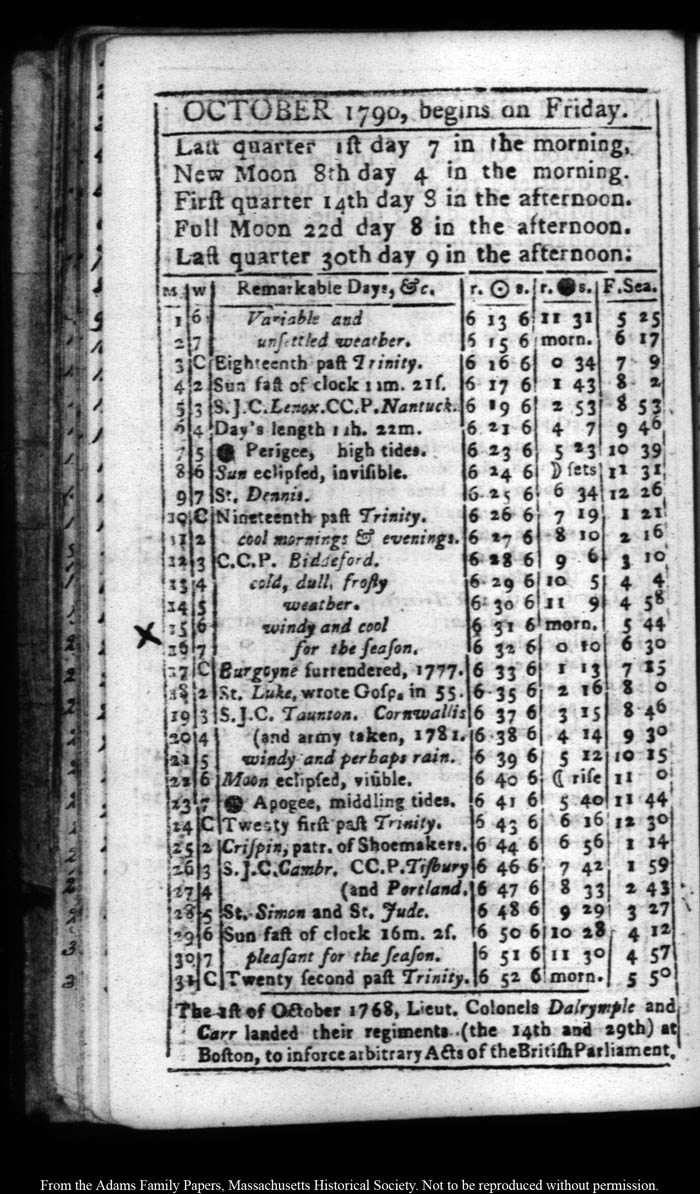 OCTOBER 1790, begins on Friday.
Laſt quarter 1ſt day 7 in the morning,
New Moon 8th day 4 in the morning.
Firſt quarter 14th day 8 in the afternoon.
Full Moon 22d day 8 in the afternoon.
Laſt quarter 30th day 9 in the afternoon:
M. W Remarkable Days, &c. r. ☉ s. r. ● s. F. Sea.
1 6 Variable and 6 13 6 11 31 5 25
2 7 unſettled weather. 6 15 6 morn. 6 17
3 C Eighteenth paſt Trinity. 6 16 6 0 34 7 9
4 2 Sun faſt of clock 11m. 21ſ. 6 17 6 1 43 8 2
5 3 S.J.C. Lenox. CC.P. Nantuck. 6 19 6 2 53 8 53
6 4 Day's length 11h. 22m. 6 21 6 4 7 9 46
7 5 ● Perigee, high tides. 6 23 6 5 23 10 39
8 6 Sun eclipſed, inviſible. 6 24 6 ☽ ſets 11 31
9 7 St. Dennis. 6 25 6 6 34 12 26
10 C Nineteenth paſt Trinity. 6 26 6 7 19 1 21
11 2 cool mornings & evenings. 6 27 6 8 10 2 16
12 3 C.C.P. Biddeford. 6 28 6 9 6 3 10
13 4 cold, dull, froſty 6 29 6 10 5 4 4
14 5 weather. 6 30 6 11 9 4 58
X 15 6 windy and cool 6 31 6 morn. 5 44
16 7 for the ſeaſon. 6 32 6 0 10 6 30
17 C Burgoyne ſurrendered, 1777. 6 33 6 1 13 7 15
18 2 St. Luke, wrote Goſp. in 55. 6 35 6 2 16 8 0
19 3 S.J.C. Taunton. Cornwallis 6 37 6 3 15 8 46
20 4 (and army taken, 1781. 6 38 6 4 14 9 30
21 5 windy and perhaps rain. 6 39 6 5 12 10 15
22 6 Moon eclipſed, viſible. 6 40 6 ☾ riſe 11 0
23 7 ● Apogee, middling tides. 6 41 6 5 40 11 44
24 C Twenty firſt paſt Trinity. 6 43 6 6 16 12 30
25 2 Criſpin, patr. of Shoemakers. 6 44 6 6 56 1 14
26 3 S.J.C. Cambr. CC.P. Tiſbury 6 46 6 7 42 1 59
27 4 (and Portland. 6 47 6 8 33 2 43
28 5 St. Simon and St. Jude. 6 48 6 9 29 3 27
29 6 Sun faſt of clock 16m. 2ſ. 6 50 6 10 28 4 12
30 7 pleaſant for the ſeaſon. 6 51 6 11 30 4 57
31 C Twenty ſecond paſt Trinity. 6 52 6 morn. 5 50
The 1ſt of October 1768, Lieut. Colonels Dalrymple and
Carr landed their regiments (the 14th and 29th) at
Boſton, to inforce arbitrary Acts of the Britiſh Parliament.
From the Adams Family Papers, Massachusetts Historical Society. Not to be reproduced without permission.